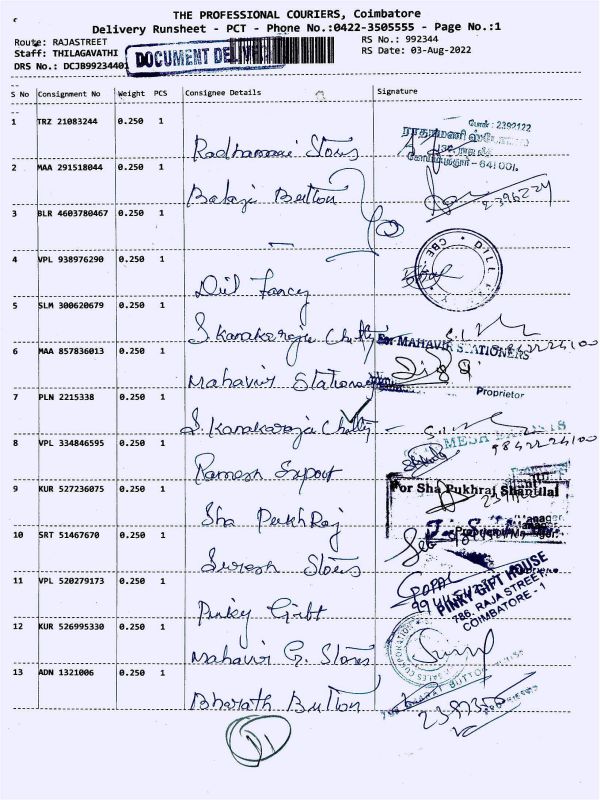 THE PROFESSIONAL COURIERS, Coimbatore
Delivery Runsheet - PCT - Phone No.:0422-3505555 - Page No.:1
Route: RAJASTREET
RS No.: 992344
Staff: THILAGAVATHI
RS Date: 03-Aug-2022
DRS No.: DCJB99234401
DOCUMENT DELIVERY
S No Consignment No Weight PCS Consignee Details Signature
1 TRZ 21083244 0.250 1 Radhamani Stores
போன் : 2392122
கோயமுத்தூர் - 641 001.
2 MAA 291518044 0.250 1 Balaji Button
2396224
3 BLR 4603780467 0.250 1
4 VPL 938976290 0.250 1 Dil Fancy
DILL CBE
5 SLM 300620679 0.250 1 S. Kanakaraja Chetty
9842224100
6 MAA 857836013 0.250 1 Mahavir Stationery
For MAHAVIR STATIONERS
Proprietor
7 PLN 2215338 0.250 1 S. Kanakaraja Chetty
9842224100
8 VPL 334846595 0.250 1 Ramesh Export
9 KUR 527236075 0.250 1 Sha Pukhraj
For Sha Pukhraj Shantilal
Manager.
10 SRT 51467670 0.250 1 Suresh Stores
11 VPL 520279173 0.250 1 Pinky Gift
GOPAL
PINKY GIFT HOUSE
786, RAJA STREET,
COIMBATORE - 1
12 KUR 526995330 0.250 1 Mahavir G. Stores
13 ADN 1321006 0.250 1 Bharath Button